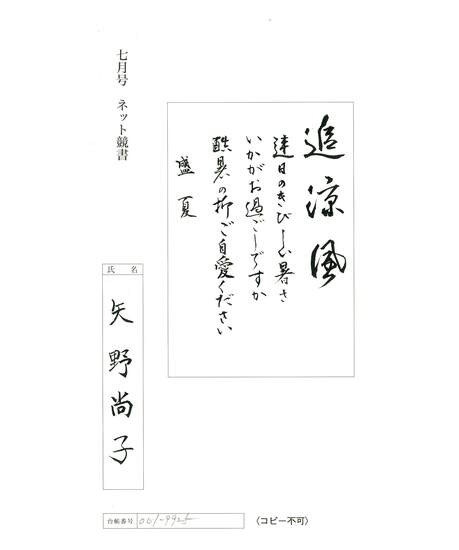 七月号 ネット競書
追涼風
連日のきびしい暑さ
いかがお過ごしですか
酷暑の折ご自愛ください
盛夏
氏名
矢野尚子
台帳番号 001-9925
(コピー不可)